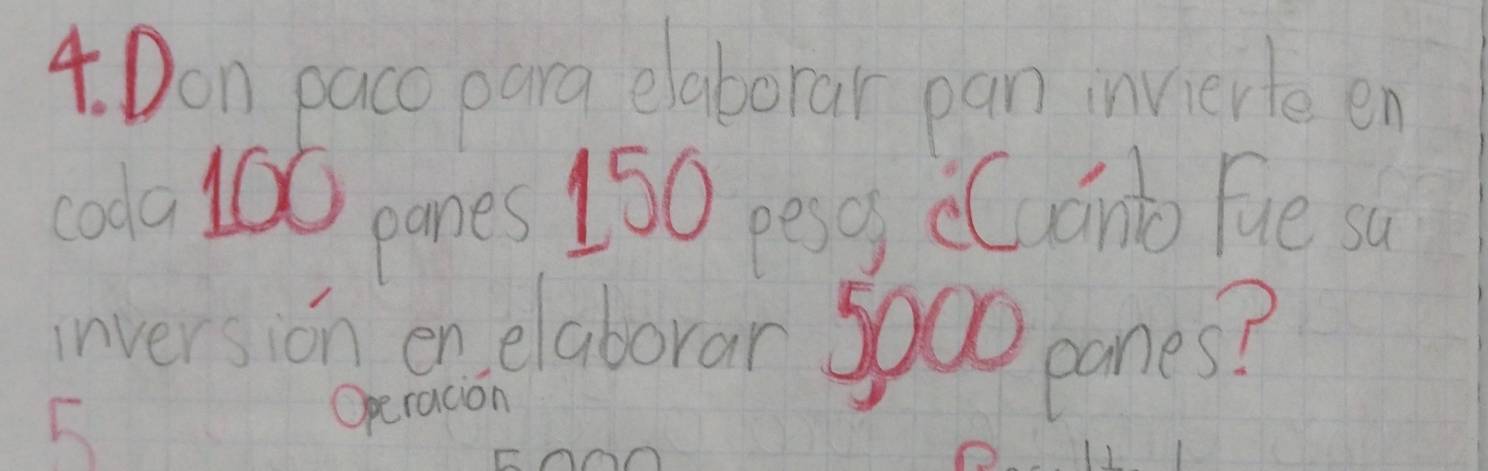 4. Don paco para elaborar pan invierte en
cada 100 panes 150 pesos, ¿Cuánto Fue su
inversión en elaborar 5,000 panes?
Operación
5